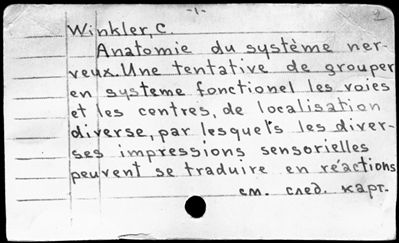 -1-
2
Winkler, C.
Anatomie du système ner-
veux. Une tentative de grouper
en systeme fonctionel les voies
et les centres, de localisation
diverse, par lesquels les diver-
ses impressions sensorielles
peuvent se traduire en réactions
см. след. карт.